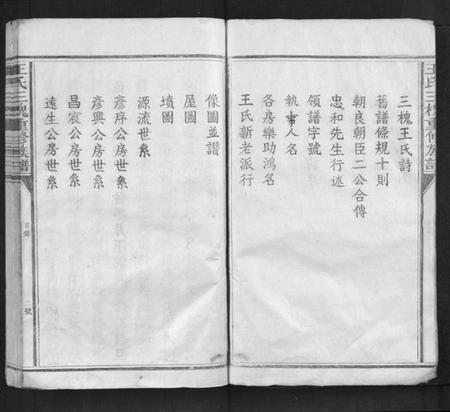 王氏三槐重修族譜
三槐王氏詩
舊譜條規十則
朝良朝臣二公合傳
忠和先生行述
領譜字號
執事人名
各房樂助鴻名
王氏新老派行
像圖並讚
屋圖
墳圖
源流世系
彥庠公房世系
彥興公房世系
昌宸公房世系
遠生公房世系
王氏三槐重修族譜
目錄
二號